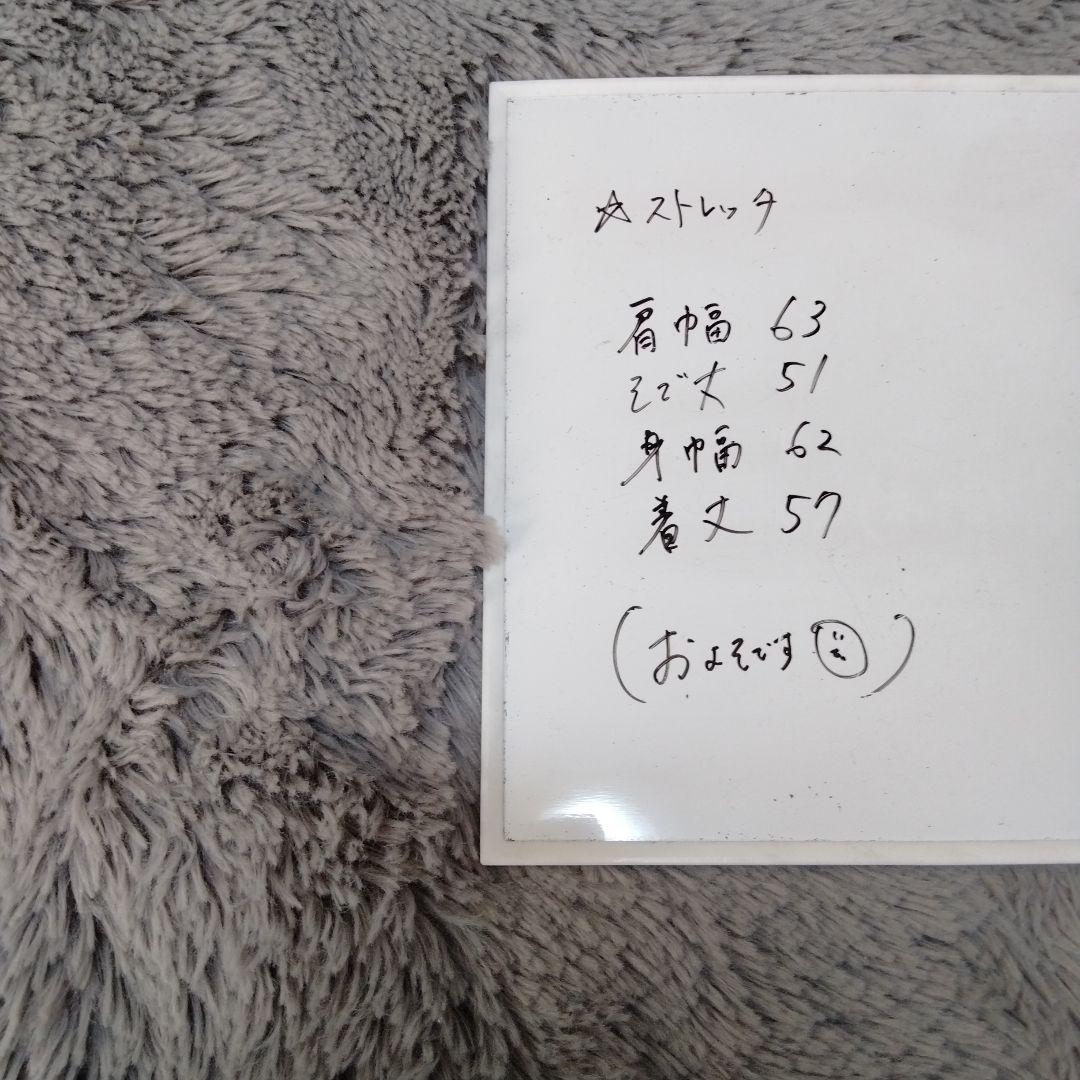 ☆ストレッチ
肩幅 63
そで丈 51
身幅 62
着丈 57
(およそです)